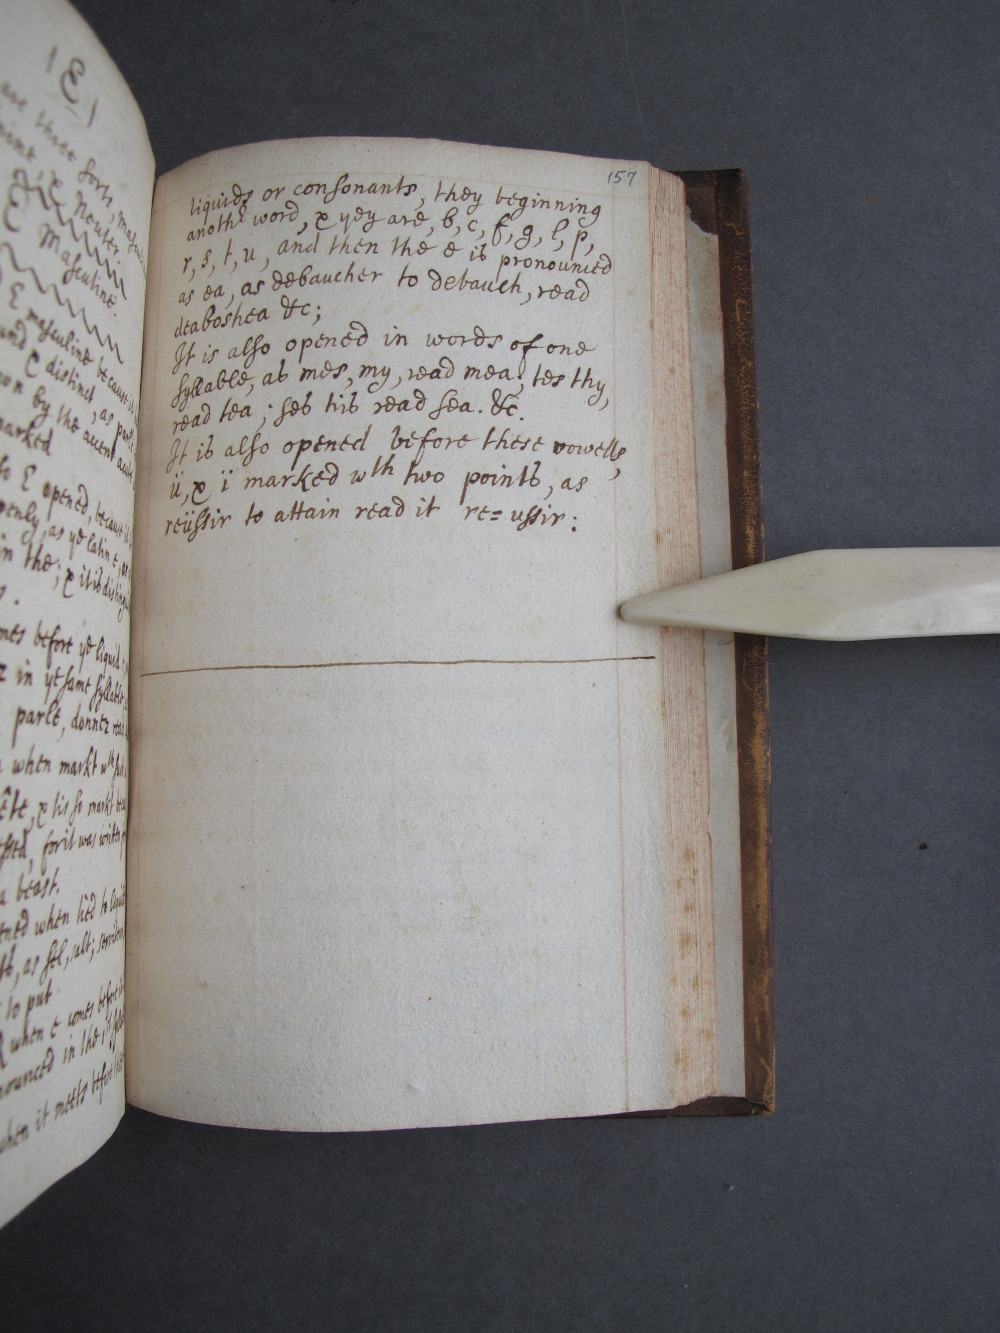 1 E 1
are three sorts, masculin
, & Neuter.
E Masculine.
E masculine because it
und & distinct, as parle
wn by the accent acute
marked
so E opened, because it is
penly, as ye latin e, or
in the; & it is distingu
s.
mes before ye liquid
z in ye same syllable
parlé, donnez read
when markt wth
Ête, & tis so markt beca
for it was written
a beast.
ened when tied to liquid
as sel, salt;
to put
R when e comes before
nounced in the 1st
when it meets before
157
liquids or consonants, they beginning
anothr word, & yey are, b, c, f, g, l, p,
r, s, t, u, and then the e is pronounced
as ea, as debaucher to debauch, read
deaboshea &c;
It is also opened in words of one
syllable, as mes, my, read mea; tes thy,
read tea; ses his read sea. &c.
It is also opened before these vowells,
ü, & ï marked wth two points, as
reüssir to attain read it re= ussir: